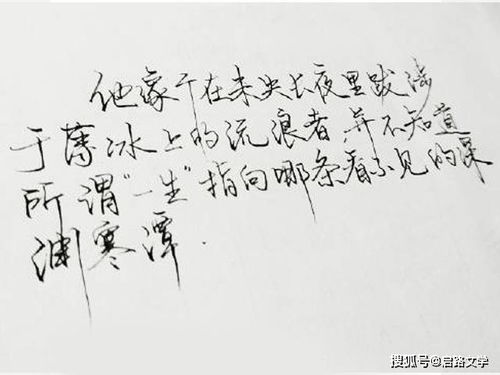 他像个在未央长夜里跋涉
于薄冰上的流浪者 并不知道
所谓“一生”指向哪条看不见的深
渊寒潭.
搜狐号@启路文学